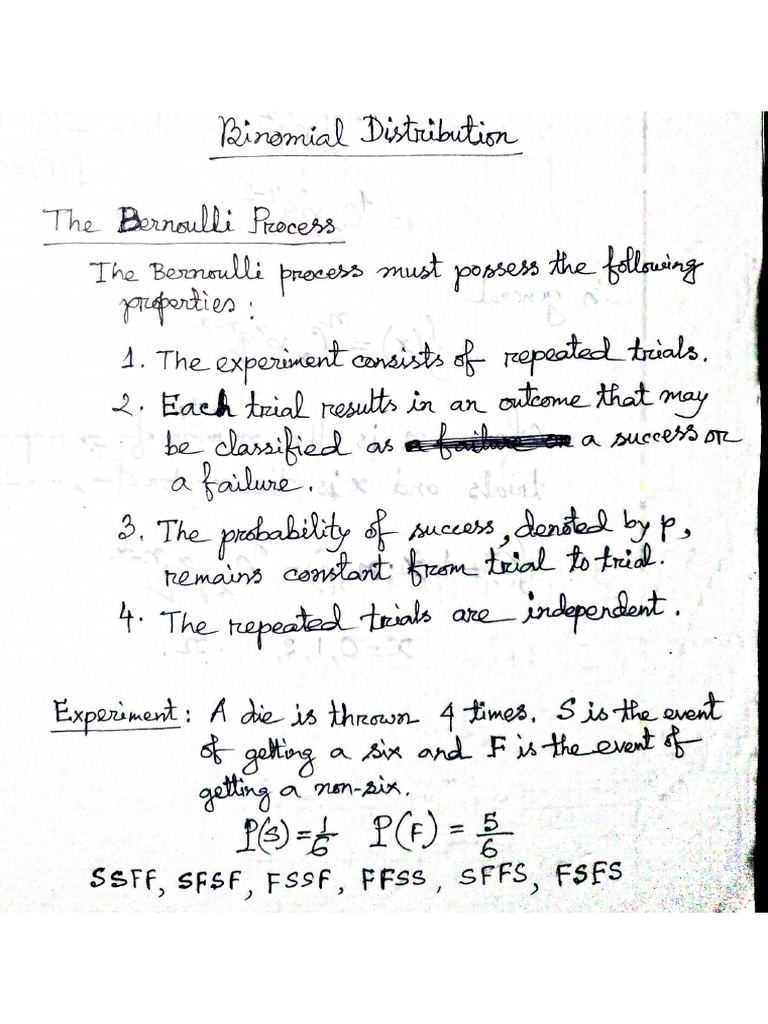 Binomial Distribution
The Bernoulli Process
The Bernoulli process must possess the following
properties :
1. The experiment consists of repeated trials.
2. Each trial results in an outcome that may
be classified as a success or
a failure.
3. The probability of success, denoted by p,
remains constant from trial to trial.
4. The repeated trials are independent.
Experiment: A die is thrown 4 times. S is the event
of getting a six and F is the event of
getting a non-six.
P(S) = 1/6 P(F) = 5/6
SSFF, SFSF, FSSF, FFSS, SFFS, FSFS